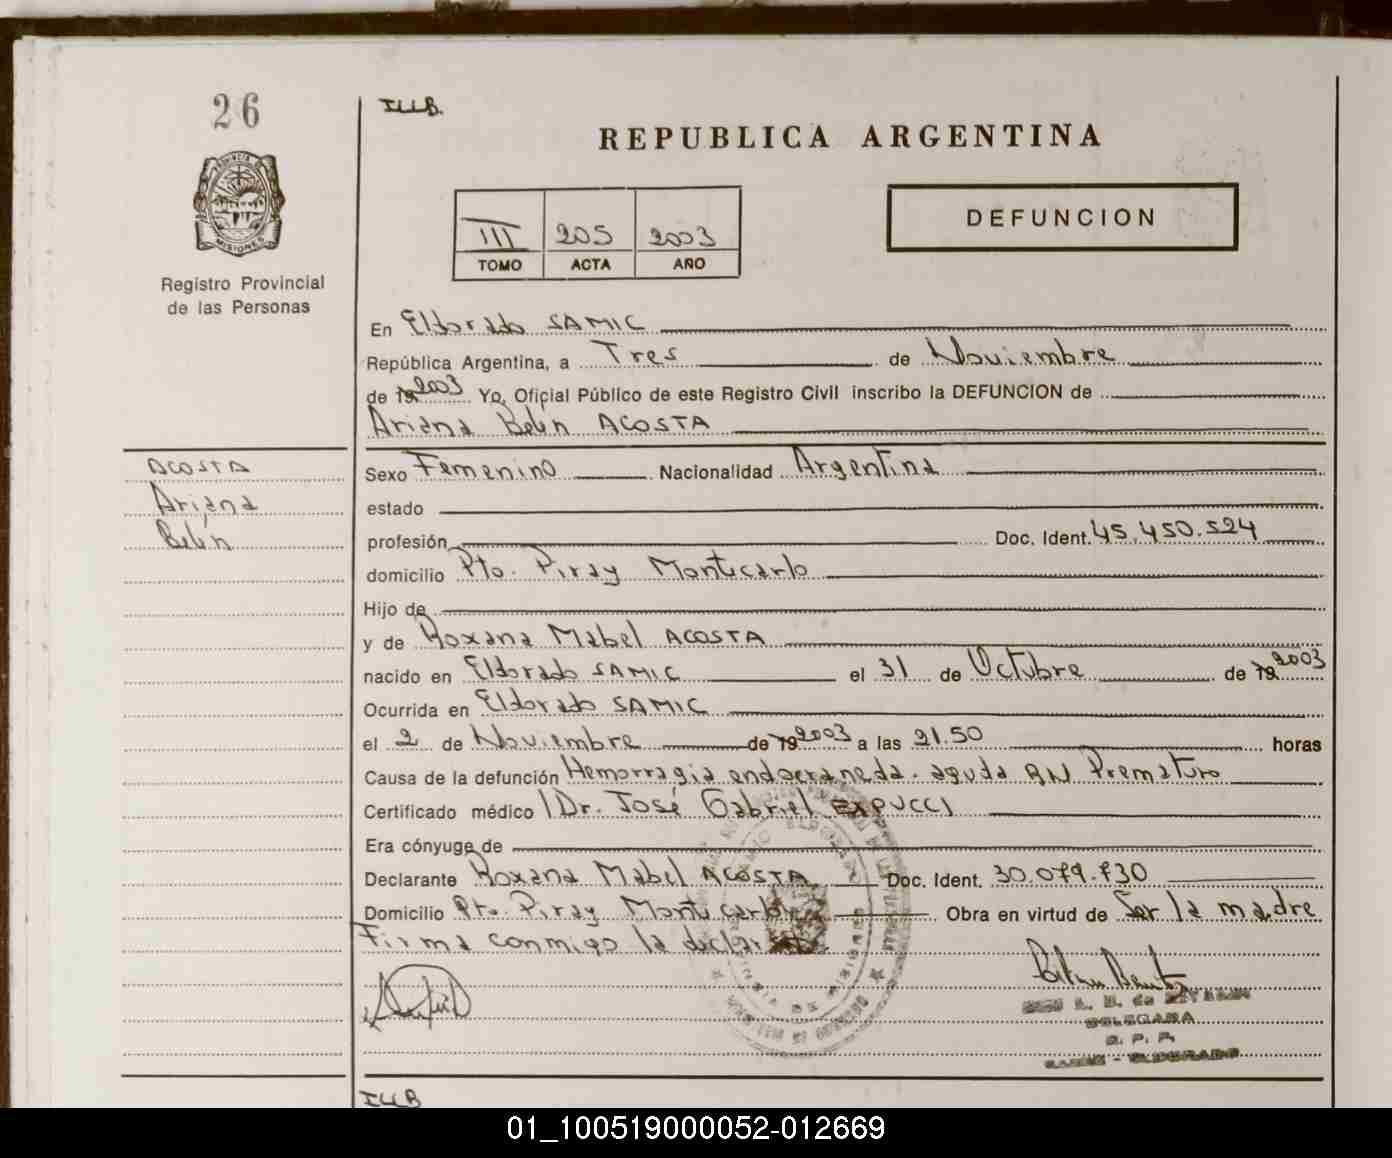 26
REPUBLICA ARGENTINA
PROVINCIA DE
MISIONES
Registro Provincial
de las Personas
III 205 2003
TOMO ACTA AÑO
DEFUNCION
En Eldorado SAMIC
República Argentina, a Tres de Noviembre
de 19 2003 Yo, Oficial Público de este Registro Civil inscribo la DEFUNCION de
Ariana Belén ACOSTA
ACOSTA
Ariana
Belén
Sexo Femenino Nacionalidad Argentina
estado
profesión Doc. Ident. 45.450.524
domicilio Pto. Piray Montecarlo
Hijo de
y de Roxana Mabel ACOSTA
nacido en Eldorado SAMIC el 31 de Octubre de 19 2003
Ocurrida en Eldorado SAMIC
el 2 de Noviembre de 19 2003 a las 21.50 horas
Causa de la defunción Hemorragia endocraneda. aguda RN Prematuro
Certificado médico Dr. José Gabriel
Era cónyuge de
Declarante Roxana Mabel ACOSTA Doc. Ident. 30.079.730
Domicilio Pto. Piray Montecarlo Obra en virtud de Ser la madre
Firma conmigo la
DELEGADA
R. P. P.
SAMIC - ELDORADO
01_100519000052-012669